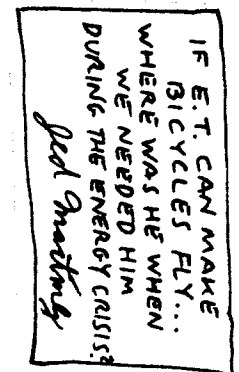 IF E.T. CAN MAKE
BICYCLES FLY...
WHERE WAS HE WHEN
WE NEEDED HIM
DURING THE ENERGY CRISIS?